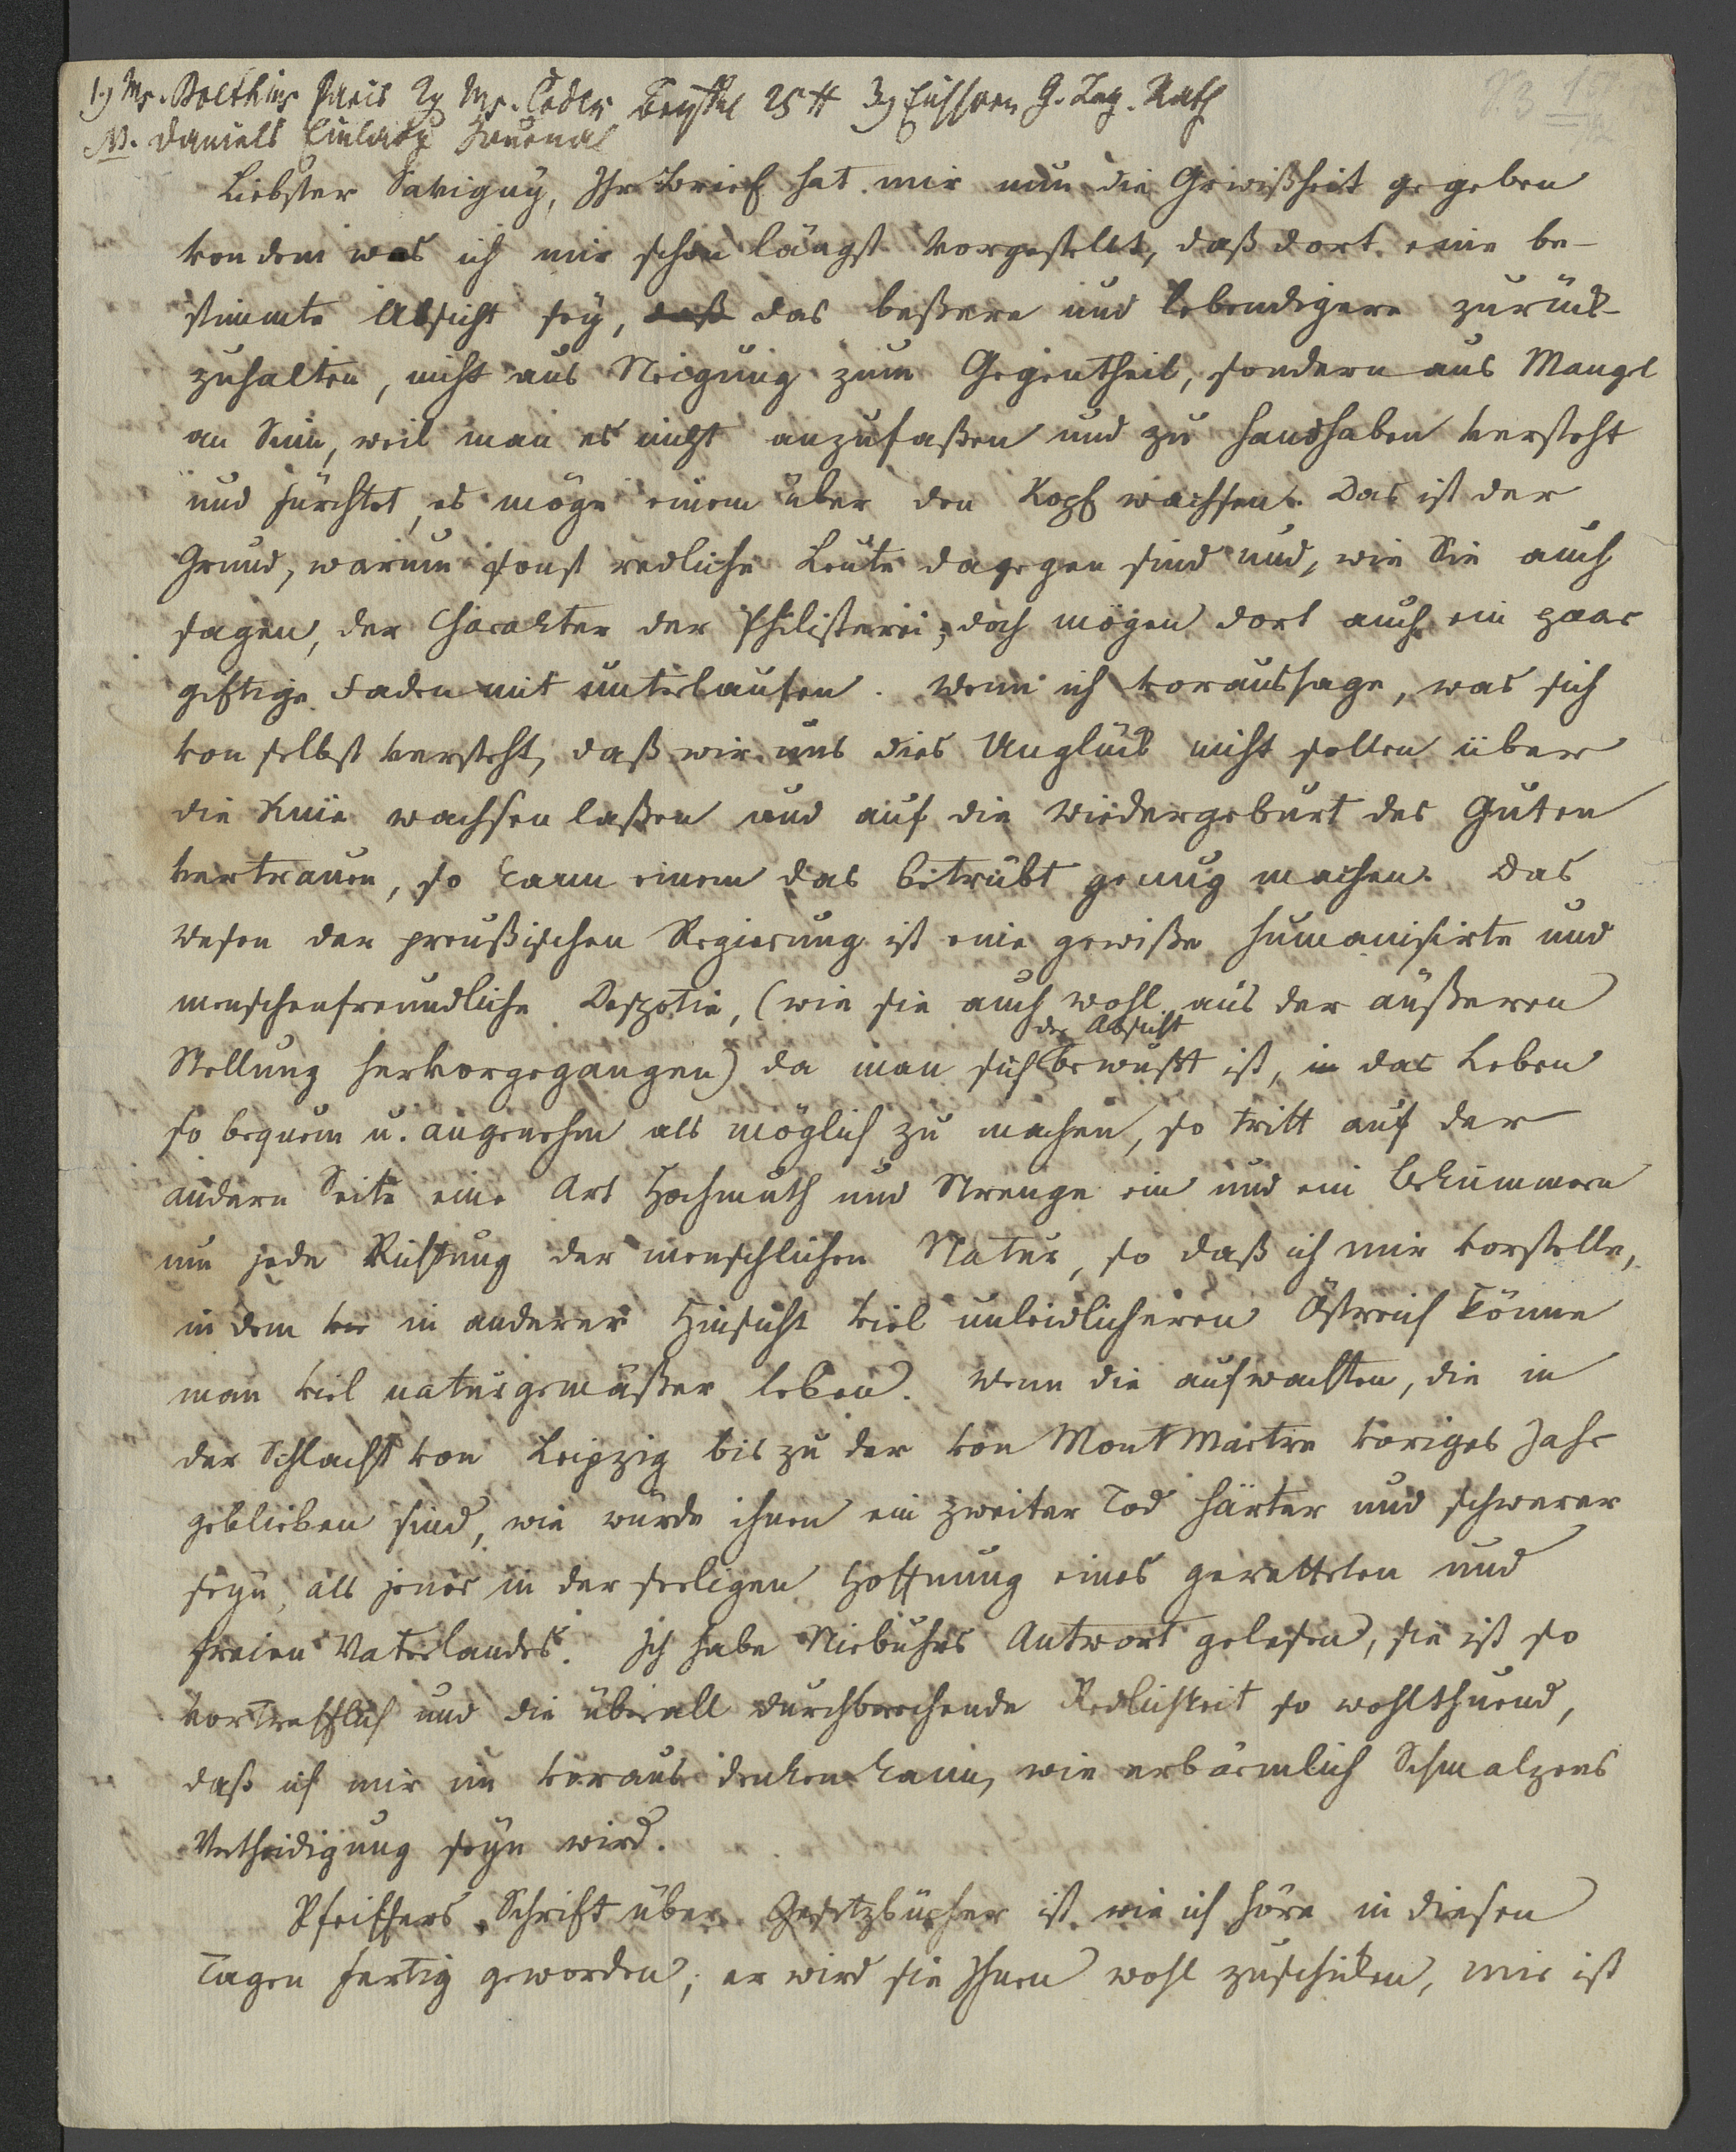 1) Ms. Boethius Paris 2) Ms. Codex 25 # 3) G. Rath
NB. Daniels Einladg Journal
Liebster Savigny, Ihr Brief hat mir nun die Gewißheit gegeben
von dem was ich mir schon längst vorgestellt, daß dort eine be-
stimmte Absicht sey, daß das beßere und lebendigere zurück-
zuhalten, nicht aus Neigung zum Gegentheil, sondern aus Mangel
an Sinn, weil man es nicht anzufaßen und zu handhaben versteht
und fürchtet, es möge einem über den Kopf wachsen. Das ist der
Grund, warum sonst redliche Leute dagegen sind und, wie Sie auch
sagen, der Charakter der Philisterei; doch mögen dort auch ein paar
giftige Faden mit unterlaufen. Wenn ich voraussage, was sich
von selbst versteht, daß wir uns dies Unglück nicht sollen über
die Knie wachsen laßen und auf die Wiedergeburt des Guten
vertrauen, so kann einem das betrübt genug machen. Das
Wesen der preußischen Regierung ist eine gewiße humanisirte und
menschenfreundliche Despotie, (wie sie auch wohl aus der äußeren
der Absicht
Stellung hervorgegangen) da man sich bewußt ist, in das Leben
so bequem u. angenehm als möglich zu machen, so tritt auf der
andern Seite eine Art Hochmuth und Strenge ein und ein Bekümmern
um jede Richtung der menschlichen Natur, so daß ich mir vorstelle,
in dem vie in anderer Hinsicht viel unleidlicheren Östreich könne
man viel naturgemäßer leben. Wenn die aufwachten, die in
der Schlacht von Leipzig bis zu der von Montmartre voriges Jahr
geblieben sind, wie würde ihnen ein zweiter Tod härter und schwerer
seyn, als jener in der seeligen Hoffnung eines geretteten und
freien Vaterlandes. Ich habe Niebuhrs Antwort gelesen, sie ist so
vortrefflich und die überall durchbrechende Redlichkeit so wohlthuend,
daß ich mir im voraus denken kann, wie erbärmlich Schmalzens
Vertheidigung seyn wird.
Pfeiffers Schrift über Gesetzbücher ist wie ich höre in diesen
Tagen fertig geworden; er wird sie Ihnen wohl zuschicken, mir ist